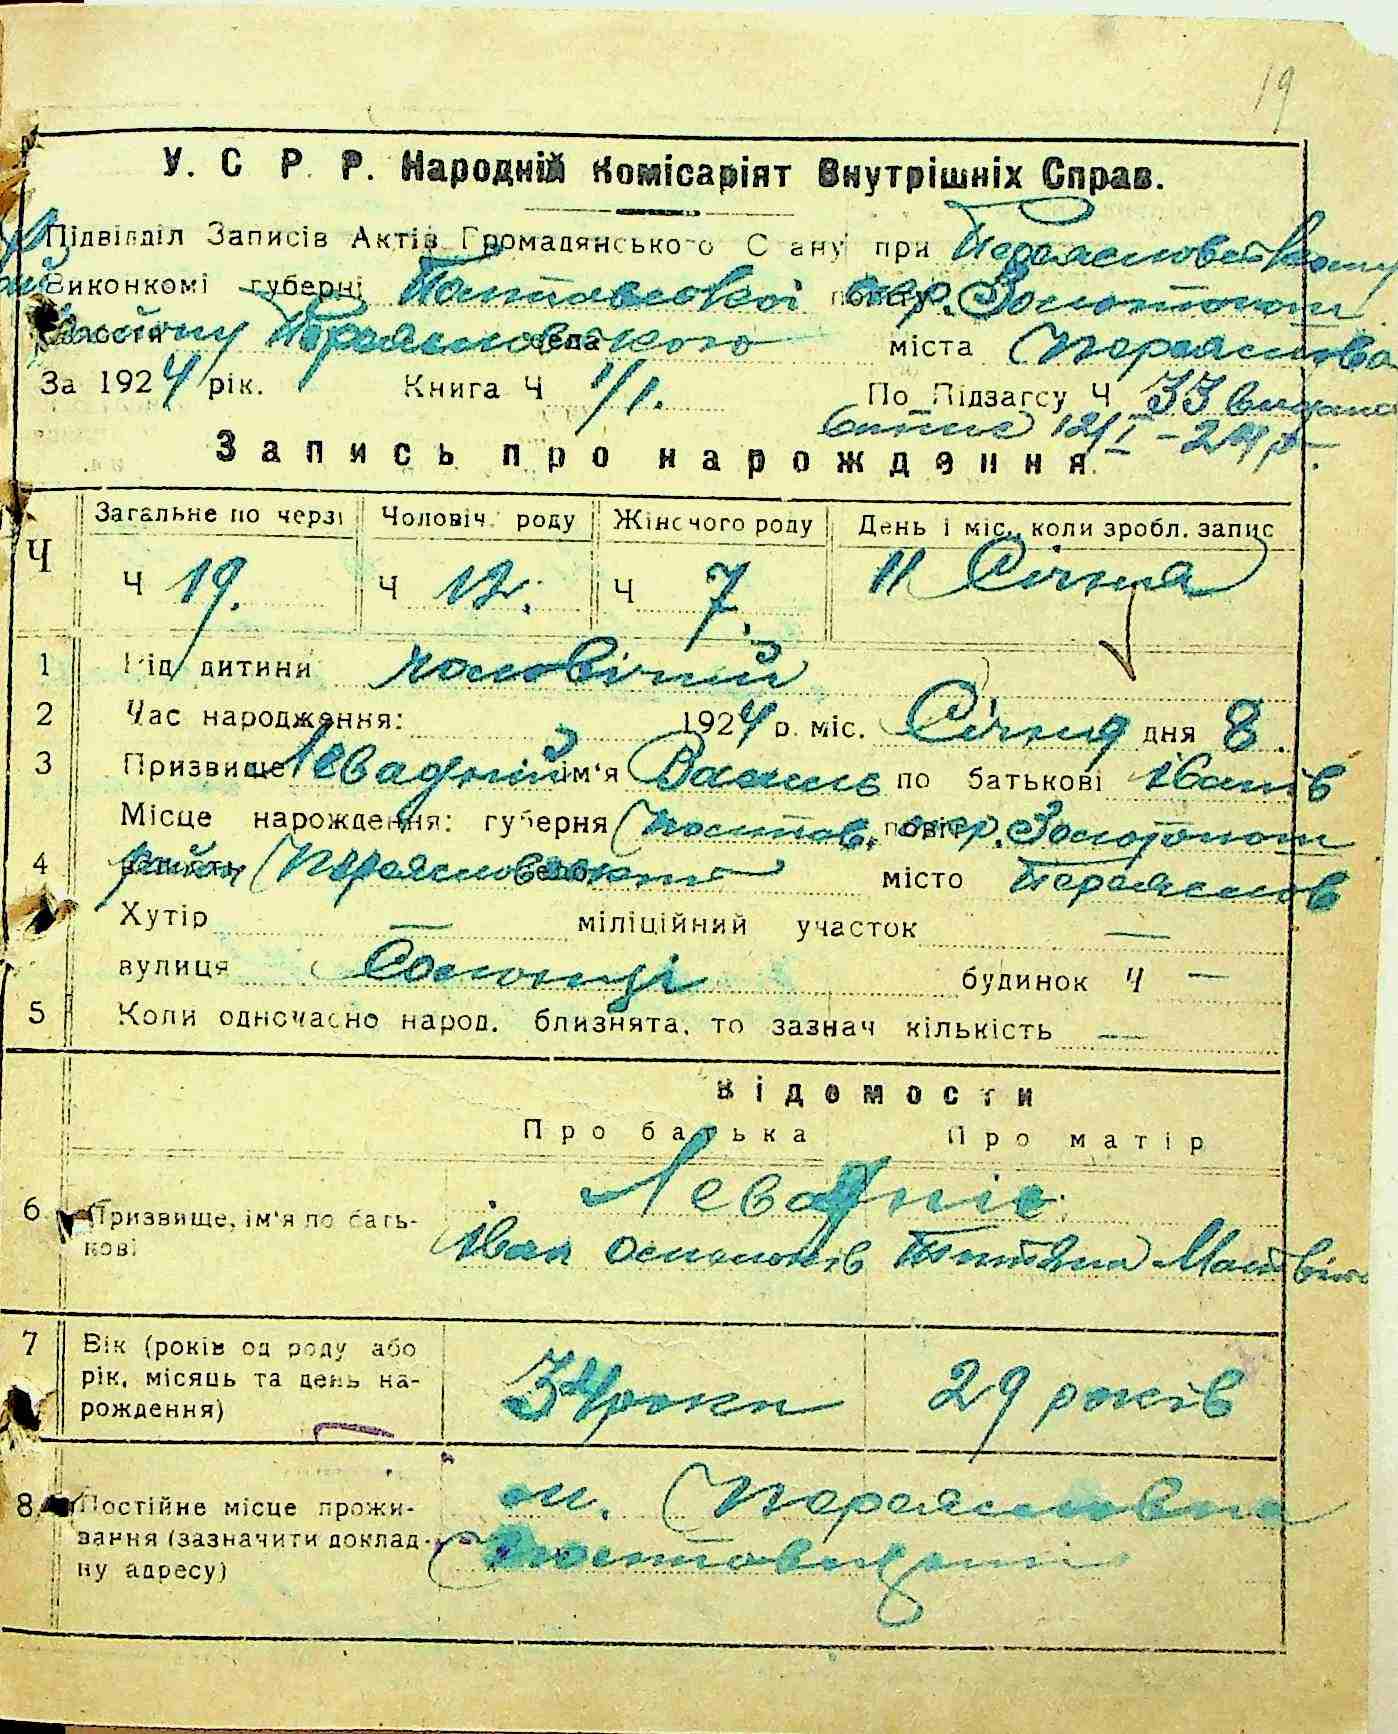 19
У. С. Р. Р. Народній Комісаріят Внутрішніх Справ.
Підвідділ Записів Актів Громадянського Стану при Переяславському
Виконкомі губерні Полтавської окр. Золотонош
району Переяславського села міста Переяслова
За 1924 рік. Книга Ч 1/1. По Підзагсу Ч 33 видана
12/I-24 р.
Запись про народження
Ч Загальне по черзі Чоловіч. роду Жіночого роду День і міс., коли зробл. запис
Ч 19. Ч 12. Ч 7. 11 Січня
1 Рід дитини чоловічий
2 Час народження: 1924 р. міс. Січня дня 8.
3 Призвище Левадній ім'я Василь по батькові Іванів
Місце нарождення: губерня Полтав. повіт окр. Золотонош
4 район Переяславський село місто Переяслов
Хутір — міліційний участок —
вулиця Солонці будинок Ч —
5 Коли одночасно народ. близнята, то зазнач кількість —
Відомости
Про батька Про матір
Левадніє
6 Призвище, ім'я по бать-
кові Іван Тетяна Матвіїв
7 Вік (років од роду або
рік, місяць та день на- 34 роки 29 років
рождення)
8 Постійне місце прожи- м. Переяслов
вання (зазначити доклад- Полтавщини
ну адресу)